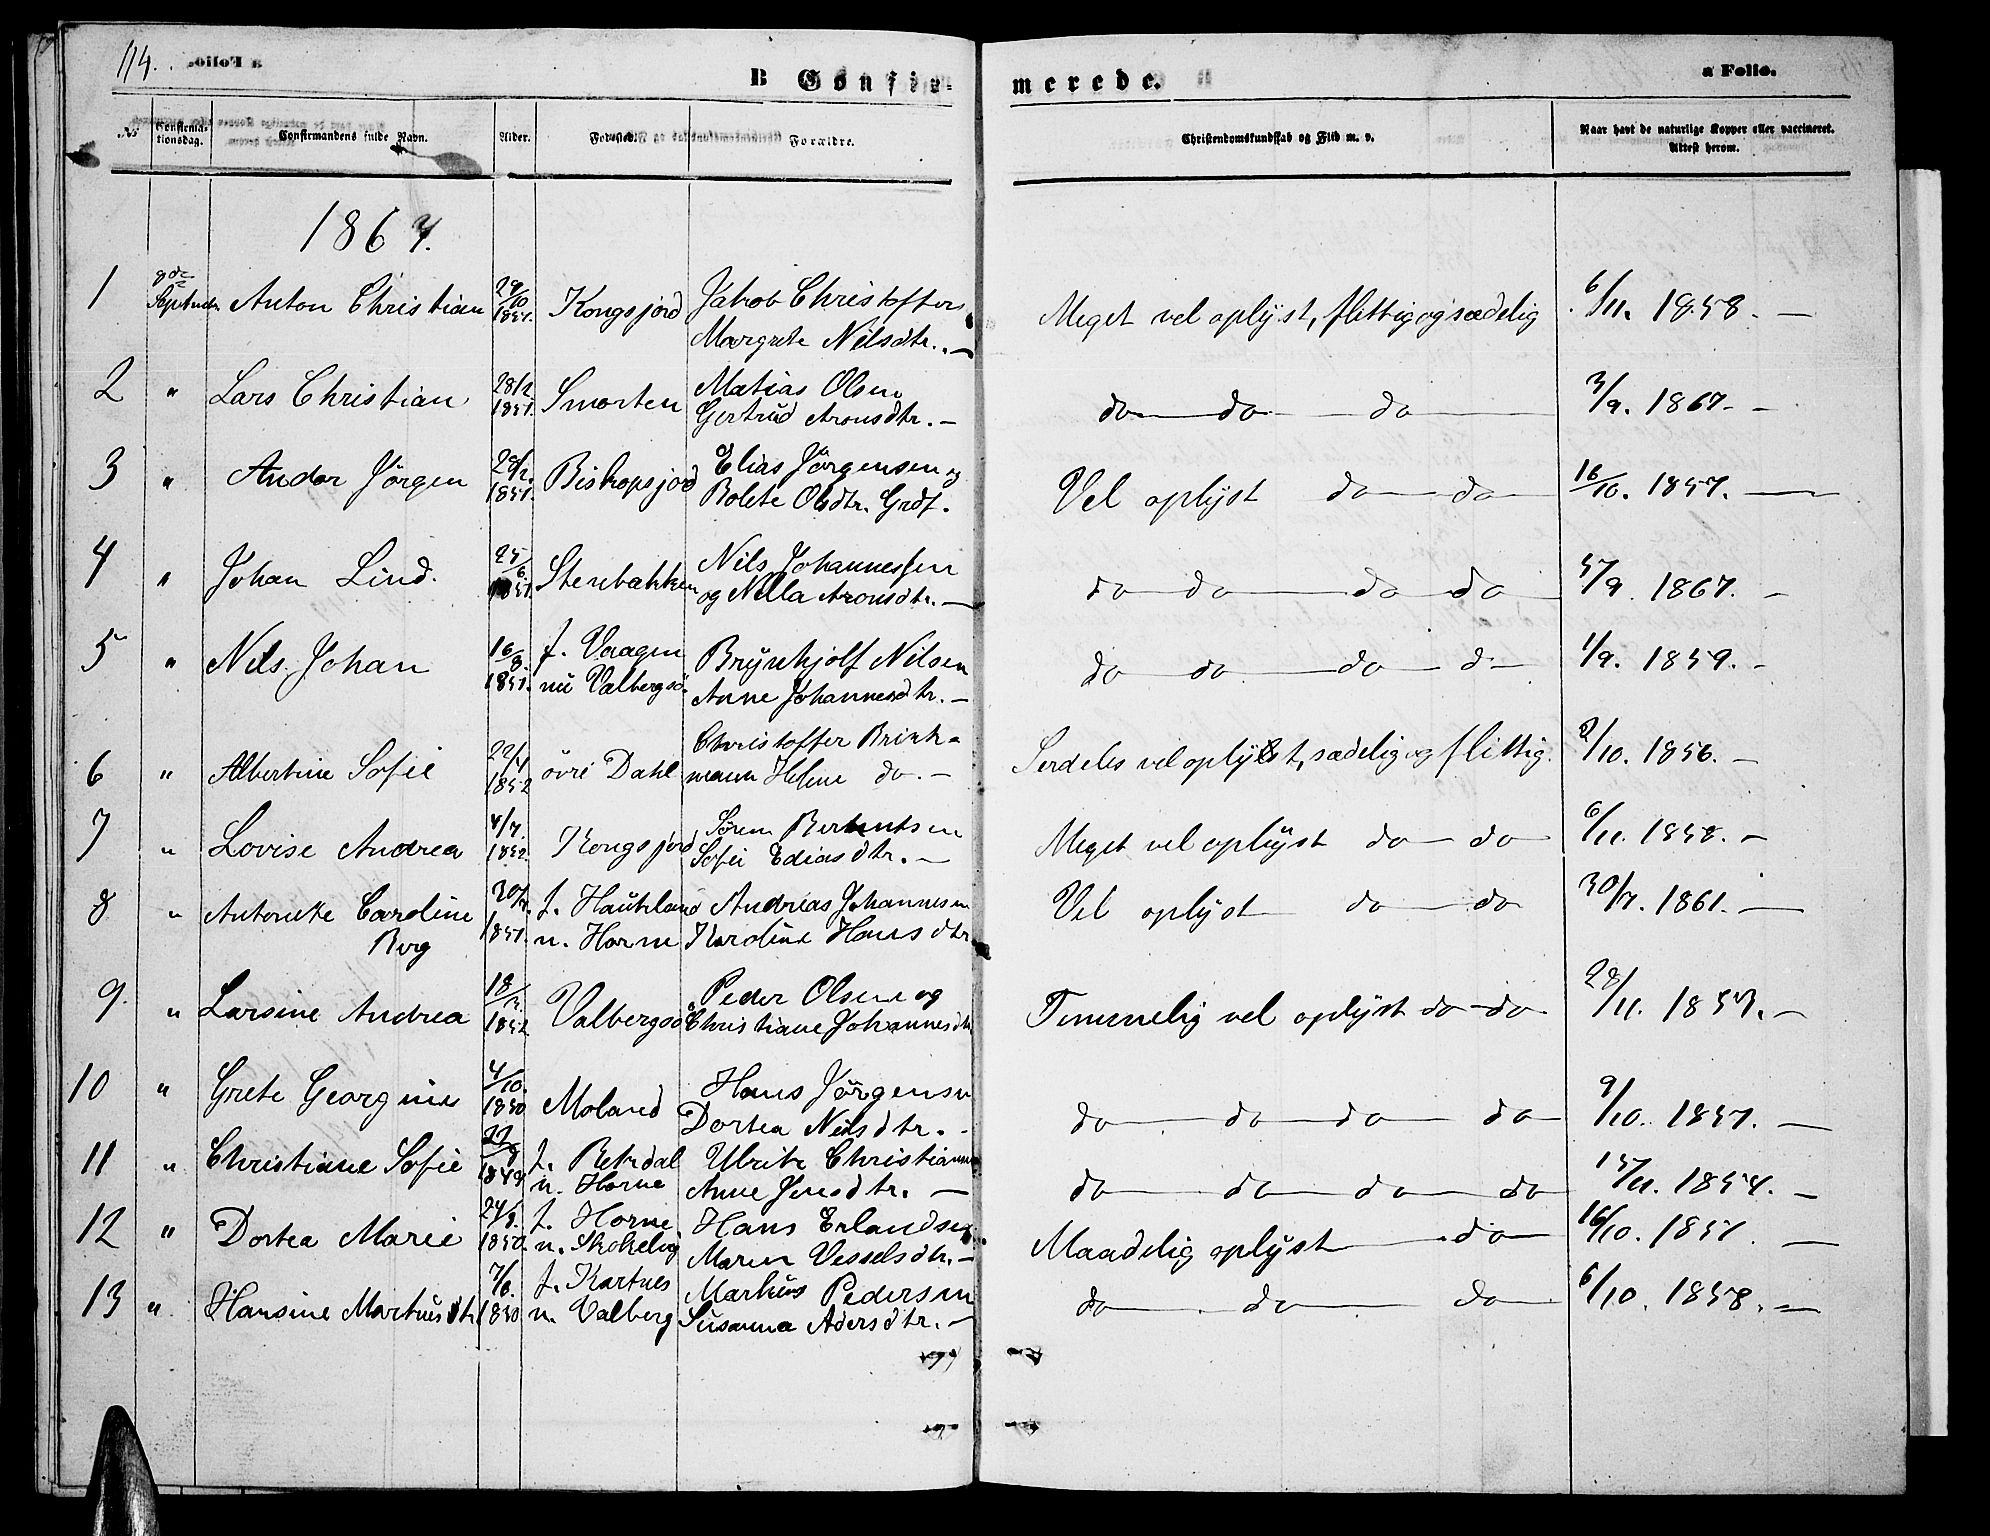 114.
a Folio.
B Confir-
merede.
a Folio.
No
Confirma-
tionsdag.
Confirmandens fulde Navn.
Alder.
Fodested.
Forældre.
Christendomskundskab og Flid m. v.
Naar havt de naturlige Kopper eller vaccineret.
Attest herom.
1867.
1 Anton Christian 29/10 1851. Kongsjord Jakob Christoffers Meget vel oplyst, flittig og sædelig 6/11. 1858. —
Margrete Nilsdtr. —
2 " Lars Christian 28/2 1851. Smorten Matias Olsen do — do — do — 3/9. 1867. —
Gertrud Aronsdtr. —
3 " Andor Jörgen 28/2. 1851. Biskopsjord Elias Jörgensen og Vel oplyst do — do — 16/10. 1857. —
Bolete Olsdtr. Grdf.
4 " Johan Lind. 25/6. 1851 Stenbakken Nils Johannessen do do — do do 5/9. 1867. —
og Nilla Aronsdtr. —
5 " Nils Johan 16/8. 1851. f. Vaagen Brynhjolf Nilsen do — do — do — d — 1/9. 1859. —
nu Valbergsö Anne Johannesdtr. —
6 " Albertine Sofie 22/4 1852 övre Dahl Christoffer Brink-
mann Helene do. — Serdeles vel oplyst, sædelig og flittig. 2/10. 1856. —
7 " Lovise Andrea 4/7. 1852. Kongsjord Sören Berentsen Meget vel oplyst do — do 6/11. 1858. —
Sofie Ediasdtr. —
8 " Antonette Caroline 30/7. 1851. f. Haukland Andreas Johannesen Vel oplyst — do — do 30/7. 1861. —
Berg n. Horne Karoline Hansdtr
9 " Larsine Andrea 18/3. 1852 Valbergsö Peder Olsen og Temmelig vel oplyst do — do 28/11. 1857. —
Christiane Johannesdtr
10 " Grete Georgine 4/10. 1850 Moland Hans Jörgensen do — do — do — do — 9/10. 1857. —
Dortea Nilsdtr. -
11 " Christiane Sofie 1849 f. Petvdal Ulrik Christiansen do — do — do — do 15/11. 1854. —
n. Horne Anne Jensdtr. —
12 " Dortea Marie 24/9. 1850. f. Horne Hans Erlandsen Maadelig oplyst — do — 16/10. 1857. —
n. Skokelvig Maren Vesselsdtr. —
13 " Hansine Martinsdtr 7/6. 1850 f. Kartnes Markus Pedersen do — do — do — 6/10. 1858. —
n. Valberg Susanna Adersdtr. —